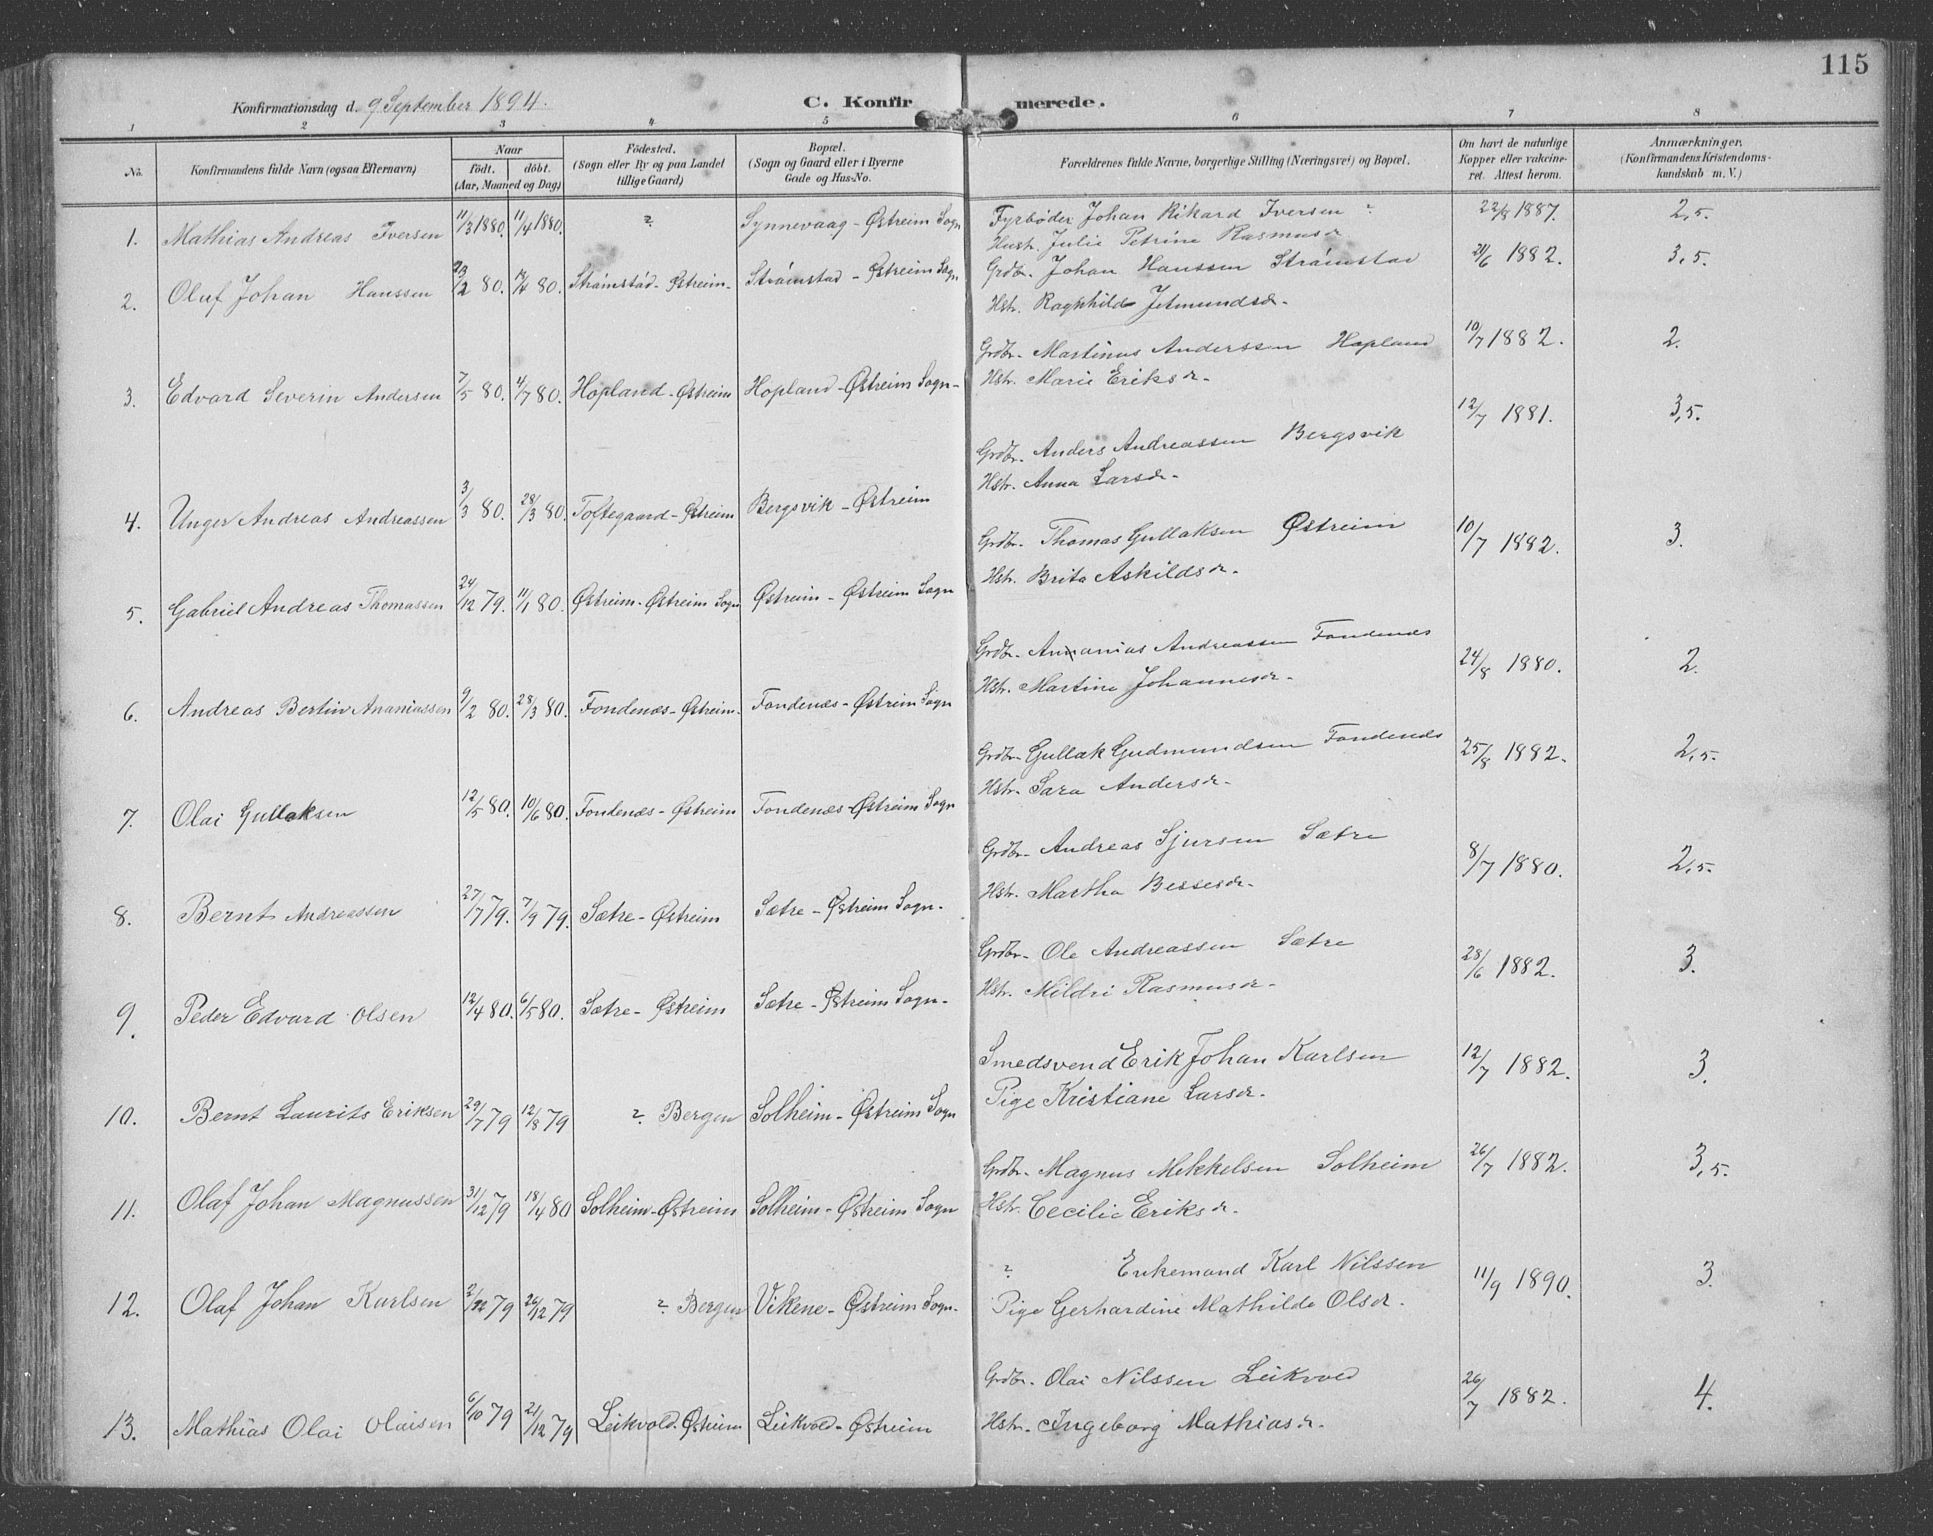 115
Konfirmationsdag d. 9 September 1894.
C. Konfirmerede.
1 2 3 4 5 6 7 8
No. Konfirmandens fulde Navn (ogsaa Efternavn) Naar födt. döbt. (Aar, Maaned og Dag) Födested. (Sogn eller By og paa Landet tillige Gaard) Bopæl. (Sogn og Gaard eller i Byerne Gade og Hus-No. Forældrenes fulde Navne, borgerlige Stilling (Næringsvei) og Bopæl. Om havt de naturlige Kopper eller vakcineret. Attest herom. Anmærkninger. (Konfirmandens Kristendomskundskab m. V.)
1. Mathias Andreas Iversen 11/3 1880. 11/4 1880. ? Synnevaag - Østreim Sogn Fyrbøder Johan Rikard Iversen ? 22/8 1887. 2,5.
Hustr. Julie Petrine Rasmusdr.
2. Oluf Johan Hanssen 23/2 80. /4 80. Strømstad - Østreim - Strømstad - Østreim Sogn Grdbr. Johan Hanssen Strømstad 21/6 1882. 3,5.
Hstr. Ragnhilde Jetmundsdr.
3. Edvard Severin Andersen 7/5 80. 4/7 80. Hopland - Østreim Hopland - Østreim Sogn - Grdbr. Martinus Anderssen Hopland 10/7 1882. 2.
Hstr. Marie Eriksdr.
4. Unger Andreas Andreassen 3/3 80. 28/3 80. Toftegaard - Østreim Bergsvik - Østreim Grdbr. Anders Andreassen Bergsvik 12/7 1881. 3,5.
Hstr. Anna Larsdr.
5. Gabriel Andreas Thomassen 24/12 79. 11/1 80. Østreim - Østreim Sogn Østreim - Østreim Sogn Grdbr. Thomas Gullaksen Østreim 10/7 1882. 3.
Hstr. Brita Askildsdr.
6. Andreas Bertin Ananiassen 9/2 80. 28/3 80. Fondenæs - Østreim. Fondenæs - Østreim Sogn Grdbr. Ananias Andreassen Fondenæs 24/8 1880. 2.
Hstr. Martine Johannesdr.
7. Olai Gullaksen 12/5 80. 10/6 80. Fondenæs - Østreim Fondenæs - Østreim Sogn Grdbr. Gullak Gudmundsen Fondenæs 25/8 1882. 2,5.
Hstr. Sara Andersdr.
8. Bernt Andreassen 27/7 79. 7/9 79. Sætre - Østreim Sætre - Østreim Sogn. Grdbr. Andreas Sjursen Sætre 8/7 1880. 2,5.
Hstr. Martha Bessesdr.
9. Peder Edvard Olsen 12/4 80. 6/5 80. Sætre - Østreim Sætre - Østreim Sogn. Grdbr. Ole Andreassen Sætre 28/6 1882. 3.
Hstr. Mildri Rasmusdr.
10. Bernt Laurits Eriksen 29/7 79 12/8 79 ? Bergen Solheim - Østreim Sogn Smedsvend Erik Johan Karlsen 12/7 1882. 3.
Pige Kristiane Larsdr.
11. Olaf Johan Magnussen 31/12 79 18/4 80 Solheim - Østreim Solheim - Østreim Sogn Grdbr. Magnus Mikkelsen Solheim 26/7 1882. 3,5.
Hstr. Cecilie Eriksdr.
12. Olaf Johan Karlsen 2/12 79 26/12 79 ? Bergen Vikene - Østreim Sogn. ? Enkemand Karl Nilssen 11/9 1890. 3.
Pige Gerhardine Mathilde Olsdr.
13. Mathias Olai Olaisen 6/10 79 21/12 79 Leikvold - Østreim Leikvold - Østreim Grdbr. Olai Nilssen Leikvold 26/7 1882. 4.
Hstr. Ingeborg Mathiasdr.